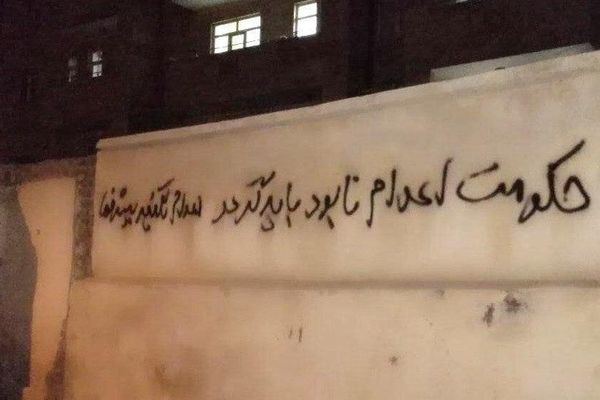 حکومت اعدام نابود باید گردد اعدام نکنید